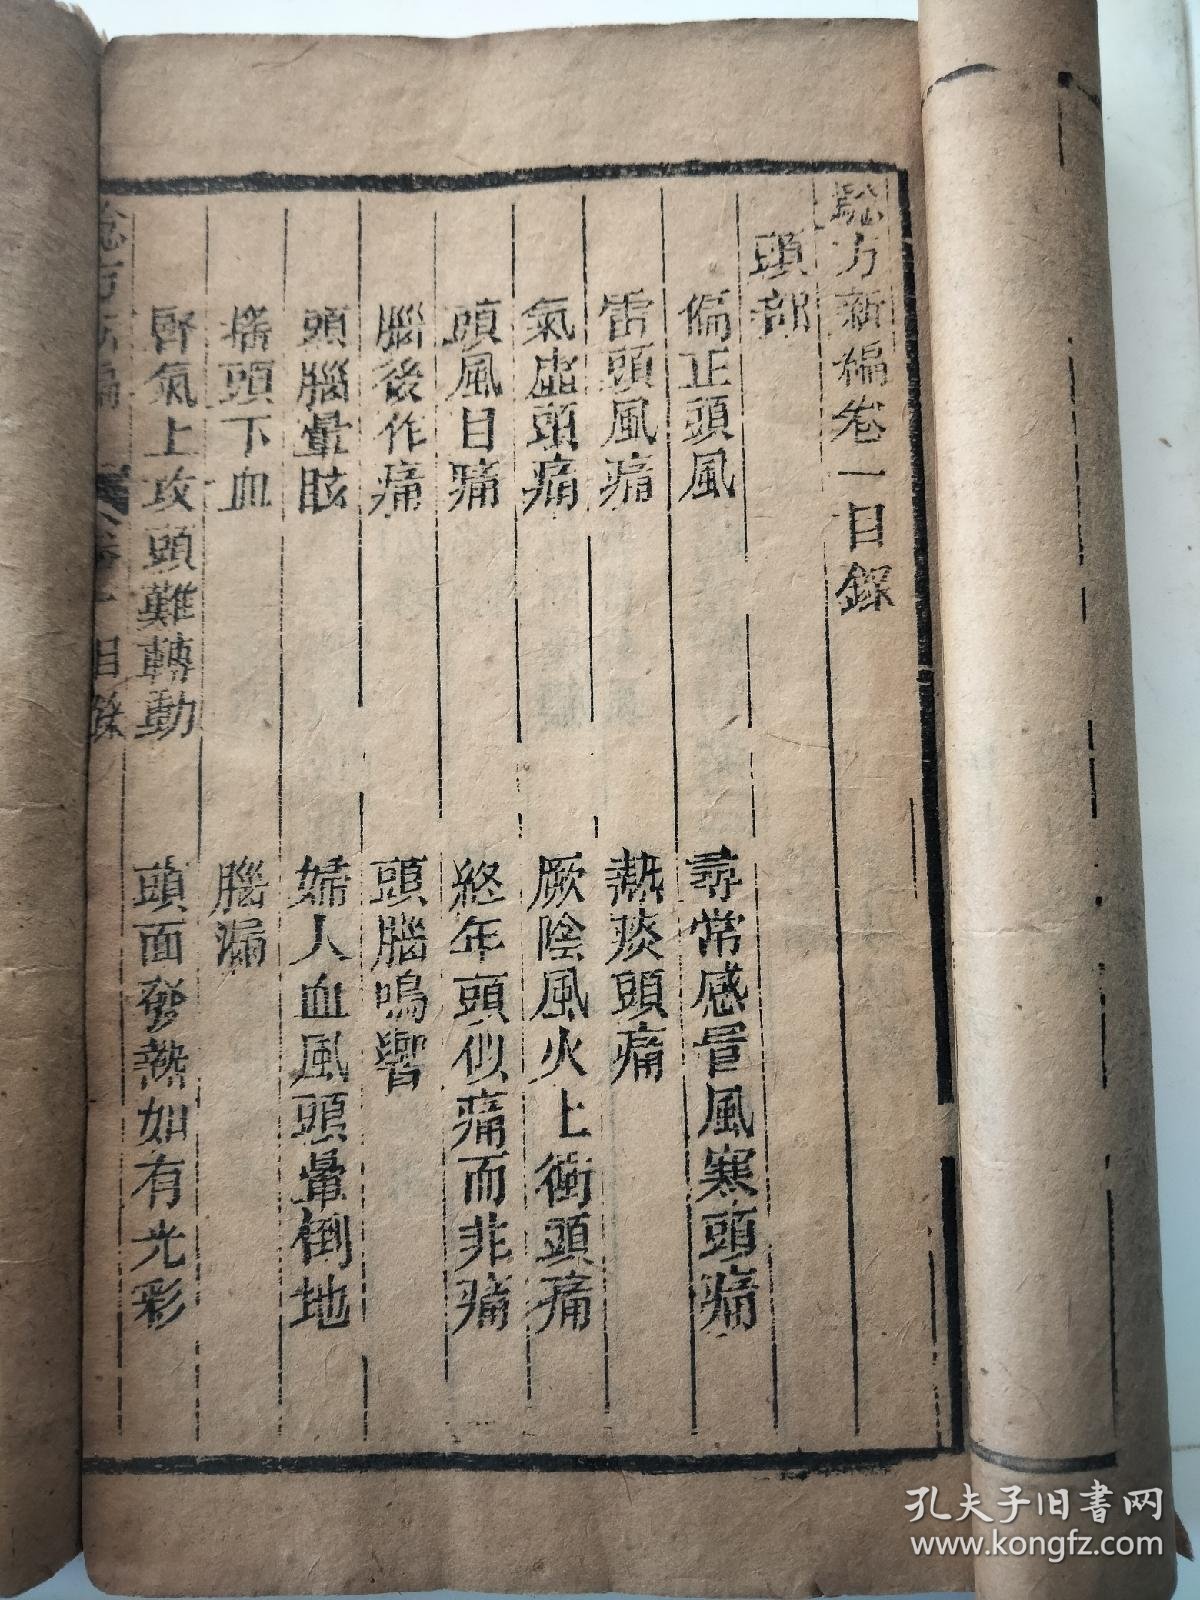 騐方新編卷一目錄
頭部
偏正頭風　尋常感冒風寒頭痛
雷頭風痛　熱痰頭痛
氣虛頭痛　厥陰風火上衝頭痛
頭風目痛　終年頭似痛而非痛
腦後作痛　頭腦鳴響
頭腦暈眩　婦人血風頭暈倒地
搖頭下血　腦漏
腎氣上攻頭難轉動　頭面發熱如有光彩
卷一目錄
孔夫子旧书网
www.kongfz.com